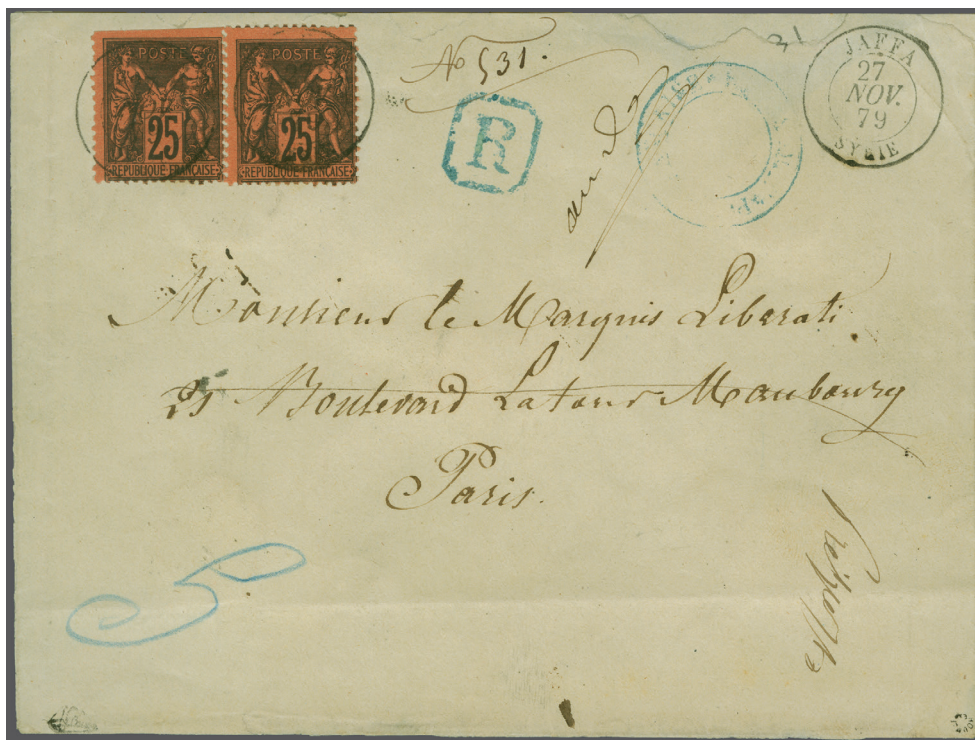 POSTE POSTE
25 25
REPUBLIQUE FRANÇAISE REPUBLIQUE FRANÇAISE
No 531.
R
31
JAFFA
27
NOV.
79
SYRIE
au
Monsieur le Marquis Liberati
25 Boulevard Latour Maubourg
Paris.
5